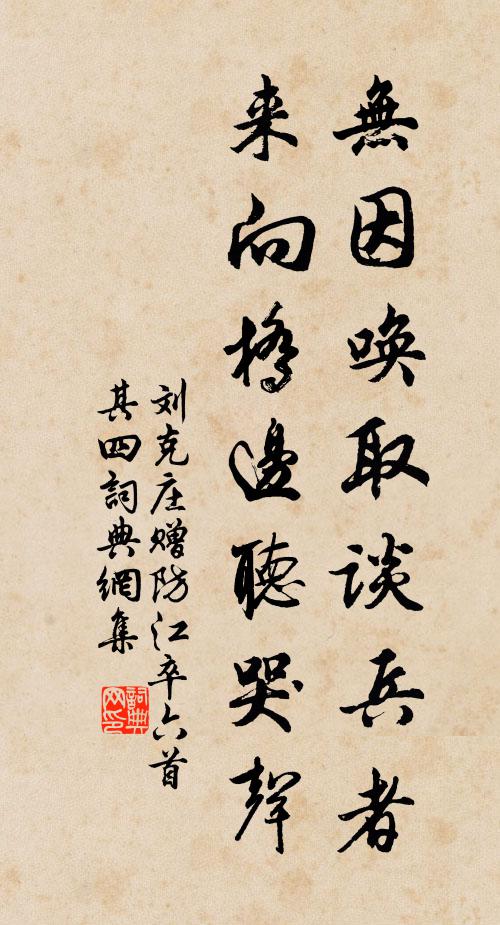 無因喚取談兵者
来向橋邊聽哭聲
刘克庄赠防江卒六首
其四詞典網集
詞典
网印